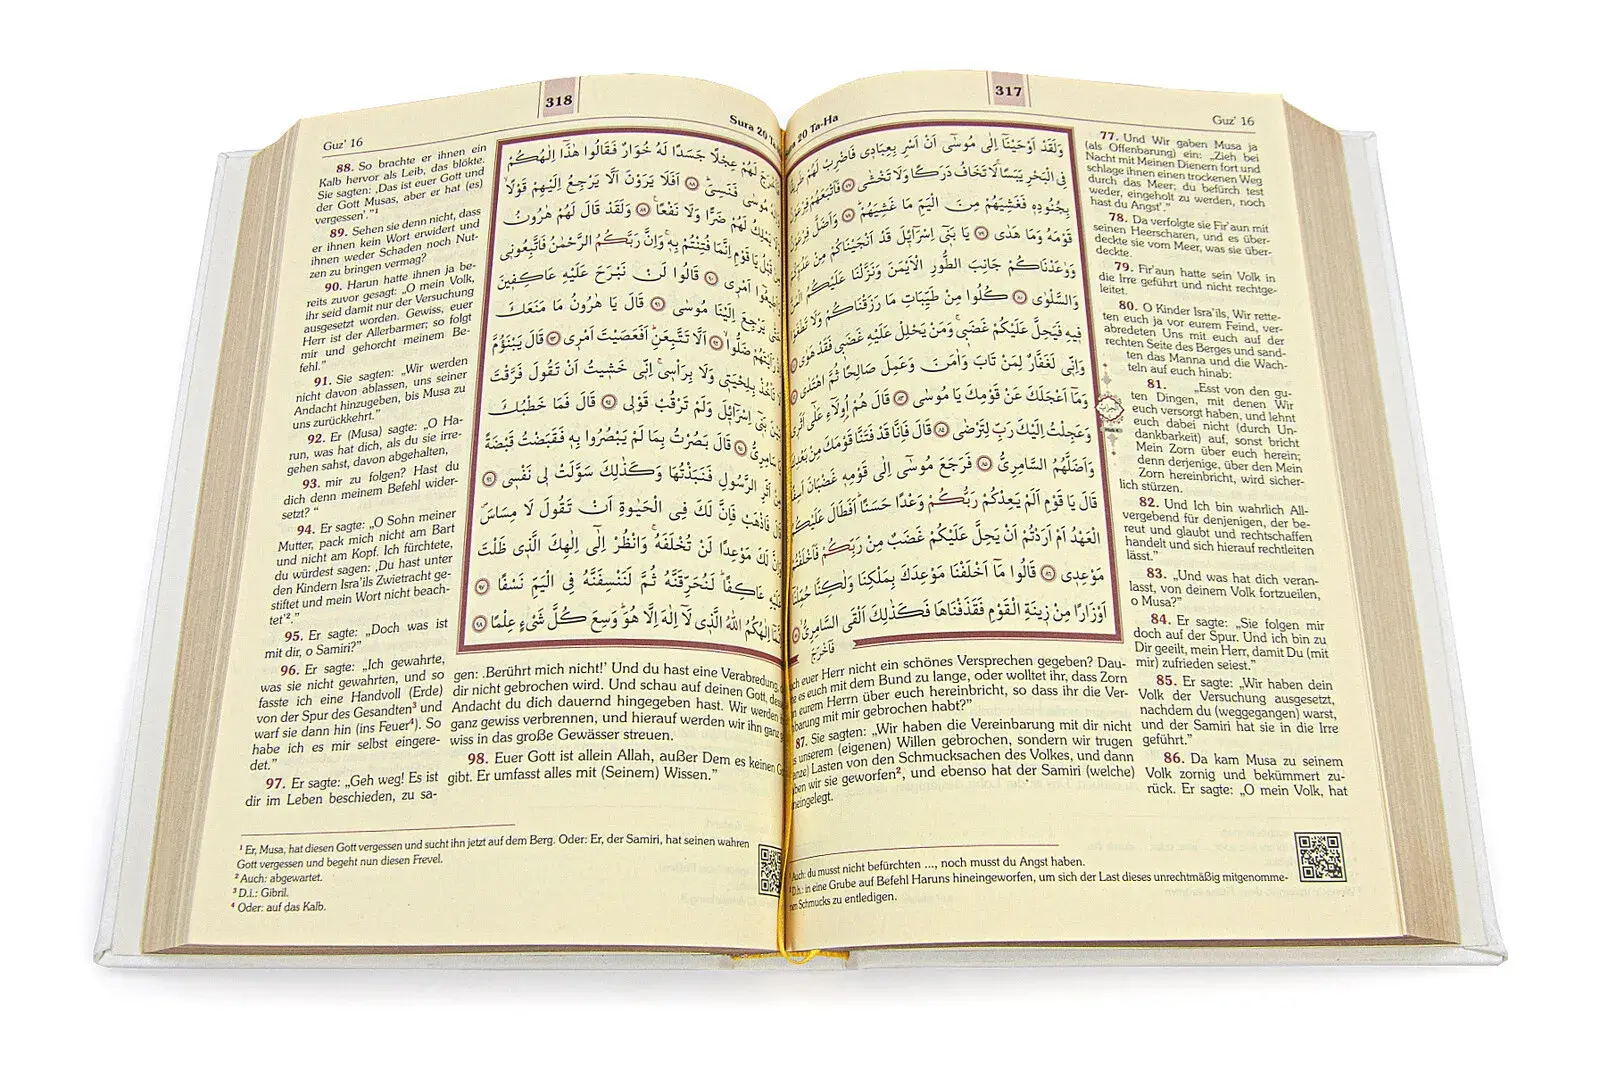 317
20 Ta-Ha
Guz' 16
وَلَقَدْ اَوْحَيْنَٓا اِلٰى مُوسٰٓى اَنْ اَسْرِ بِعِبَادٖى فَاضْرِبْ لَهُمْ
فِى الْبَحْرِ يَبَسًاۙ لَا تَخَافُ دَرَكًا وَلَا تَخْشٰى ﴿٧٧﴾ فَاَتْبَعَهُمْ
بِجُنُودِهٖ فَغَشِيَهُمْ مِنَ الْيَمِّ مَا غَشِيَهُمْ ﴿٧٨﴾ وَاَضَلَّ
قَوْمَهُ وَمَا هَدٰى ﴿٧٩﴾ يَا بَنٖٓى اِسْرَٓائٖلَ قَدْ اَنْجَيْنَاكُمْ مِنْ
وَوٰعَدْنَاكُمْ جَانِبَ الطُّورِ الْاَيْمَنَ وَنَزَّلْنَا عَلَيْكُمُ
وَالسَّلْوٰى ﴿٨٠﴾ كُلُوا مِنْ طَيِّبَاتِ مَا رَزَقْنَاكُمْ وَلَا
فٖيهِ فَيَحِلَّ عَلَيْكُمْ غَضَبٖىۚ وَمَنْ يَحْلِلْ عَلَيْهِ غَضَبٖى فَقَدْ هَوٰى
وَاِنّٖى لَغَفَّارٌ لِمَنْ تَابَ وَاٰمَنَ وَعَمِلَ صَالِحًا ثُمَّ اهْتَدٰى
وَمَٓا اَعْجَلَكَ عَنْ قَوْمِكَ يَا مُوسٰى ﴿٨٣﴾ قَالَ هُمْ اُولَٓاءِ عَلٰٓى اَثَرٖى
وَعَجِلْتُ اِلَيْكَ رَبِّ لِتَرْضٰى ﴿٨٤﴾ قَالَ فَاِنَّا قَدْ فَتَنَّا قَوْمَكَ مِنْ بَعْدِكَ
وَاَضَلَّهُمُ السَّامِرِىُّ ﴿٨٥﴾ فَرَجَعَ مُوسٰٓى اِلٰى قَوْمِهٖ غَضْبَانَ
قَالَ يَا قَوْمِ اَلَمْ يَعِدْكُمْ رَبُّكُمْ وَعْدًا حَسَنًاؕ اَفَطَالَ عَلَيْكُمُ
الْعَهْدُ اَمْ اَرَدْتُمْ اَنْ يَحِلَّ عَلَيْكُمْ غَضَبٌ مِنْ رَبِّكُمْ
مَوْعِدٖى ﴿٨٦﴾ قَالُوا مَٓا اَخْلَفْنَا مَوْعِدَكَ بِمَلْكِنَا وَلٰكِنَّا
اَوْزَارًا مِنْ زٖينَةِ الْقَوْمِ فَقَذَفْنَاهَا فَكَذٰلِكَ اَلْقَى السَّامِرِىُّ
فَاَخْرَجَ
77. Und Wir gaben Musa ja
(als Offenbarung) ein: „Zieh bei
Nacht mit Meinen Dienern fort und
schlage ihnen einen trockenen Weg
durch das Meer; du befürchtest
weder, eingeholt zu werden, noch
hast du Angst‘.“
78. Da verfolgte sie Fir'aun mit
seinen Heerscharen, und es über-
deckte sie vom Meer, was sie über-
deckte.
79. Fir'aun hatte sein Volk in
die Irre geführt und nicht rechtge-
leitet.
80. O Kinder Isra'ils, Wir rette-
ten euch ja vor eurem Feind, ver-
abredeten Uns mit euch auf der
rechten Seite des Berges und sand-
ten das Manna und die Wach-
teln auf euch hinab:
81. „Esst von den gu-
ten Dingen, mit denen Wir
euch versorgt haben, und lehnt
euch dabei nicht (durch Un-
dankbarkeit) auf, sonst bricht
Mein Zorn über euch herein;
denn derjenige, über den Mein
Zorn hereinbricht, wird sicher-
lich stürzen.
82. Und Ich bin wahrlich All-
vergebend für denjenigen, der be-
reut und glaubt und rechtschaffen
handelt und sich hierauf rechtleiten
lässt.“
83. „Und was hat dich veran-
lasst, von deinem Volk fortzueilen,
o Musa?“
84. Er sagte: „Sie folgen mir
doch auf der Spur. Und ich bin zu
Dir geeilt, mein Herr, damit Du (mit
mir) zufrieden seiest.“
85. Er sagte: „Wir haben dein
Volk der Versuchung ausgesetzt,
nachdem du (weggegangen) warst,
und der Samiri hat sie in die Irre
geführt.“
86. Da kam Musa zu seinem
Volk zornig und bekümmert zu-
rück. Er sagte: „O mein Volk, hat
euer Herr nicht ein schönes Versprechen gegeben? Dau-
es euch mit dem Bund zu lange, oder wolltet ihr, dass Zorn
eurem Herrn über euch hereinbricht, so dass ihr die Ver-
barung mit mir gebrochen habt?“
87. Sie sagten: „Wir haben die Vereinbarung mit dir nicht
unserem (eigenen) Willen gebrochen, sondern wir trugen
Lasten von den Schmucksachen des Volkes, und dann
ben wir sie geworfen², und ebenso hat der Samiri (welche)
eingelegt.
Auch: du musst nicht befürchten ..., noch musst du Angst haben.
D.h.: in eine Grube auf Befehl Haruns hineingeworfen, um sich der Last dieses unrechtmäßig mitgenomme-
nen Schmucks zu entledigen.
318
Sura 20
Guz' 16
لَهُمْ عِجْلًا جَسَدًا لَهُ خُوَارٌ فَقَالُوا هٰذَٓا اِلٰهُكُمْ
مُوسٰى فَنَسِىَؕ ﴿٨٨﴾ اَفَلَا يَرَوْنَ اَلَّا يَرْجِعُ اِلَيْهِمْ قَوْلًاۙ
يَمْلِكُ لَهُمْ ضَرًّا وَلَا نَفْعًا ﴿٨٩﴾ وَلَقَدْ قَالَ لَهُمْ هٰرُونُ
قَبْلُ يَا قَوْمِ اِنَّمَا فُتِنْتُمْ بِهٖۚ وَاِنَّ رَبَّكُمُ الرَّحْمٰنُ فَاتَّبِعُونٖى
اَمْرٖى ﴿٩٠﴾ قَالُوا لَنْ نَبْرَحَ عَلَيْهِ عَاكِفٖينَ
يَرْجِعَ اِلَيْنَا مُوسٰى ﴿٩١﴾ قَالَ يَا هٰرُونُ مَا مَنَعَكَ
رَاَيْتَهُمْ ضَلُّوا ﴿٩٢﴾ اَلَّا تَتَّبِعَنِؕ اَفَعَصَيْتَ اَمْرٖى ﴿٩٣﴾ قَالَ يَبْنَؤُمَّ
تَأْخُذْ بِلِحْيَتٖى وَلَا بِرَأْسٖىۚ اِنّٖى خَشٖيتُ اَنْ تَقُولَ فَرَّقْتَ
بَنٖٓى اِسْرَٓائٖلَ وَلَمْ تَرْقُبْ قَوْلٖى ﴿٩٤﴾ قَالَ فَمَا خَطْبُكَ
﴿٩٥﴾ قَالَ بَصُرْتُ بِمَا لَمْ يَبْصُرُوا بِهٖ فَقَبَضْتُ قَبْضَةً
مِنْ اَثَرِ الرَّسُولِ فَنَبَذْتُهَا وَكَذٰلِكَ سَوَّلَتْ لٖى نَفْسٖى ﴿٩٦﴾
قَالَ فَاذْهَبْ فَاِنَّ لَكَ فِى الْحَيٰوةِ اَنْ تَقُولَ لَا مِسَاسَ
لَكَ مَوْعِدًا لَنْ تُخْلَفَهُۚ وَانْظُرْ اِلٰٓى اِلٰهِكَ الَّذٖى ظَلْتَ
عَلَيْهِ عَاكِفًاؕ لَنُحَرِّقَنَّهُ ثُمَّ لَنَنْسِفَنَّهُ فِى الْيَمِّ نَسْفًا ﴿٩٧﴾
اِلٰهُكُمُ اللّٰهُ الَّذٖى لَٓا اِلٰهَ اِلَّا هُوَؕ وَسِعَ كُلَّ شَىْءٍ عِلْمًا ﴿٩٨﴾
88. So brachte er ihnen ein
Kalb hervor als Leib, das blökte.
Sie sagten: ‚Das ist euer Gott und
der Gott Musas, aber er hat (es)
vergessen‘.“¹
89. Sehen sie denn nicht, dass
er ihnen kein Wort erwidert und
ihnen weder Schaden noch Nut-
zen zu bringen vermag?
90. Harun hatte ihnen ja be-
reits zuvor gesagt: „O mein Volk,
ihr seid damit nur der Versuchung
ausgesetzt worden. Gewiss, euer
Herr ist der Allerbarmer; so folgt
mir und gehorcht meinem Be-
fehl.“
91. Sie sagten: „Wir werden
nicht davon ablassen, uns seiner
Andacht hinzugeben, bis Musa zu
uns zurückkehrt.“
92. Er (Musa) sagte: „O Ha-
run, was hat dich, als du sie irre-
gehen sahst, davon abgehalten,
93. mir zu folgen? Hast du
dich denn meinem Befehl wider-
setzt? “
94. Er sagte: „O Sohn meiner
Mutter, pack mich nicht am Bart
und nicht am Kopf. Ich fürchtete,
du würdest sagen: ‚Du hast unter
den Kindern Isra'ils Zwietracht ge-
stiftet und mein Wort nicht beach-
tet‘².“
95. Er sagte: „Doch was ist
mit dir, o Samiri?“
96. Er sagte: „Ich gewahrte,
was sie nicht gewahrten, und so
fasste ich eine Handvoll (Erde)
von der Spur des Gesandten³ und
warf sie dann hin (ins Feuer⁴). So
habe ich es mir selbst eingere-
det.“
97. Er sagte: „Geh weg! Es ist
dir im Leben beschieden, zu sa-
gen: ‚Berührt mich nicht!‘ Und du hast eine Verabredung,
dir nicht gebrochen wird. Und schau auf deinen Gott,
Andacht du dich dauernd hingegeben hast. Wir werden
ganz gewiss verbrennen, und hierauf werden wir ihn ganz
wiss in das große Gewässer streuen.
98. Euer Gott ist allein Allah, außer Dem es keinen
gibt. Er umfasst alles mit (Seinem) Wissen.“
¹ Er, Musa, hat diesen Gott vergessen und sucht ihn jetzt auf dem Berg. Oder: Er, der Samiri, hat seinen wahren
Gott vergessen und begeht nun diesen Frevel.
² Auch: abgewartet.
³ D.i.: Gibril.
⁴ Oder: auf das Kalb.